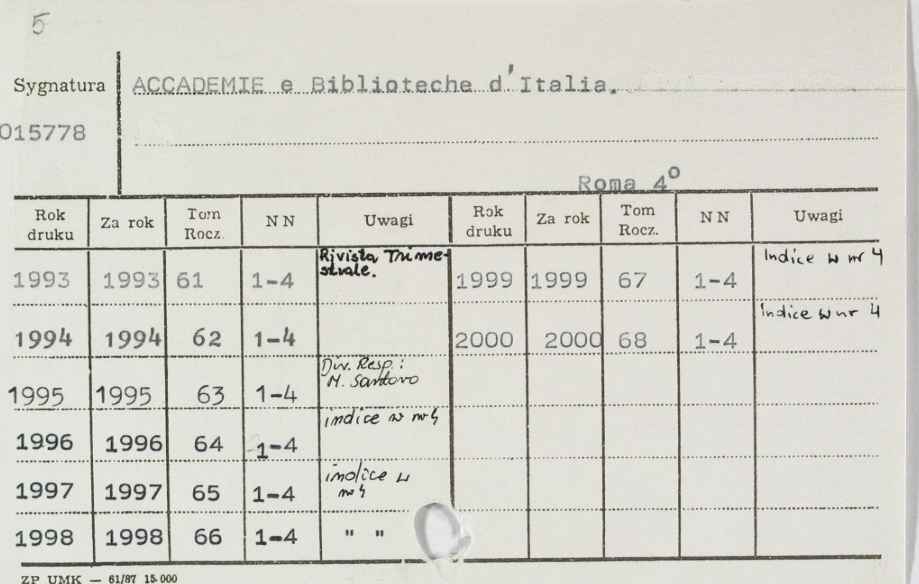 5
Sygnatura ACCADEMIE e Biblioteche d'Italia.
015778
Roma 4°
Rok druku Za rok Tom Rocz. NN Uwagi Rok druku Za rok Tom Rocz. NN Uwagi
1993 1993 61 1-4 Rivista Trimestrale. 1999 1999 67 1-4 Indice w nr 4
1994 1994 62 1-4 2000 2000 68 1-4 Indice w nr 4
1995 1995 63 1-4 Div. Resp.: M. Santoro
1996 1996 64 1-4 indice w nr 4
1997 1997 65 1-4 indice w nr 4
1998 1998 66 1-4 " "
ZP UMK — 61/87 15.000